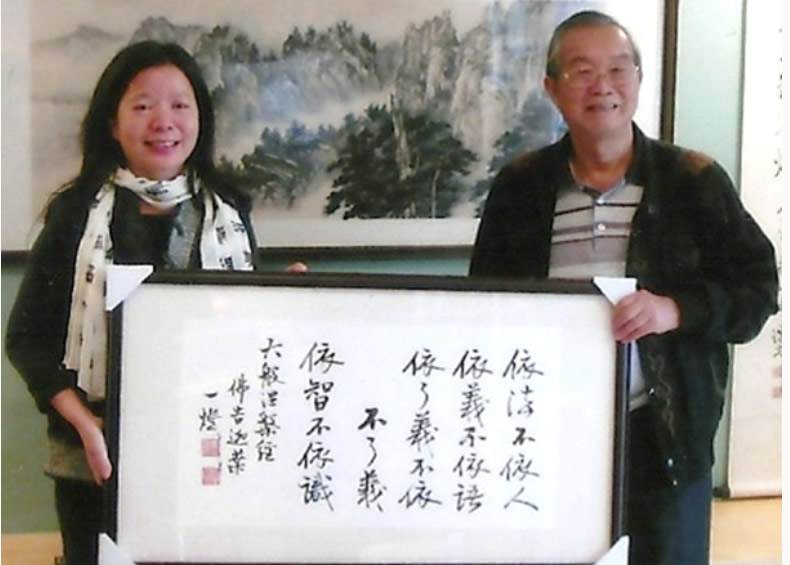 依法不依人
依義不依語
依了義不依
不了義
依智不依識
大般涅槃經
佛告迦葉
一燈